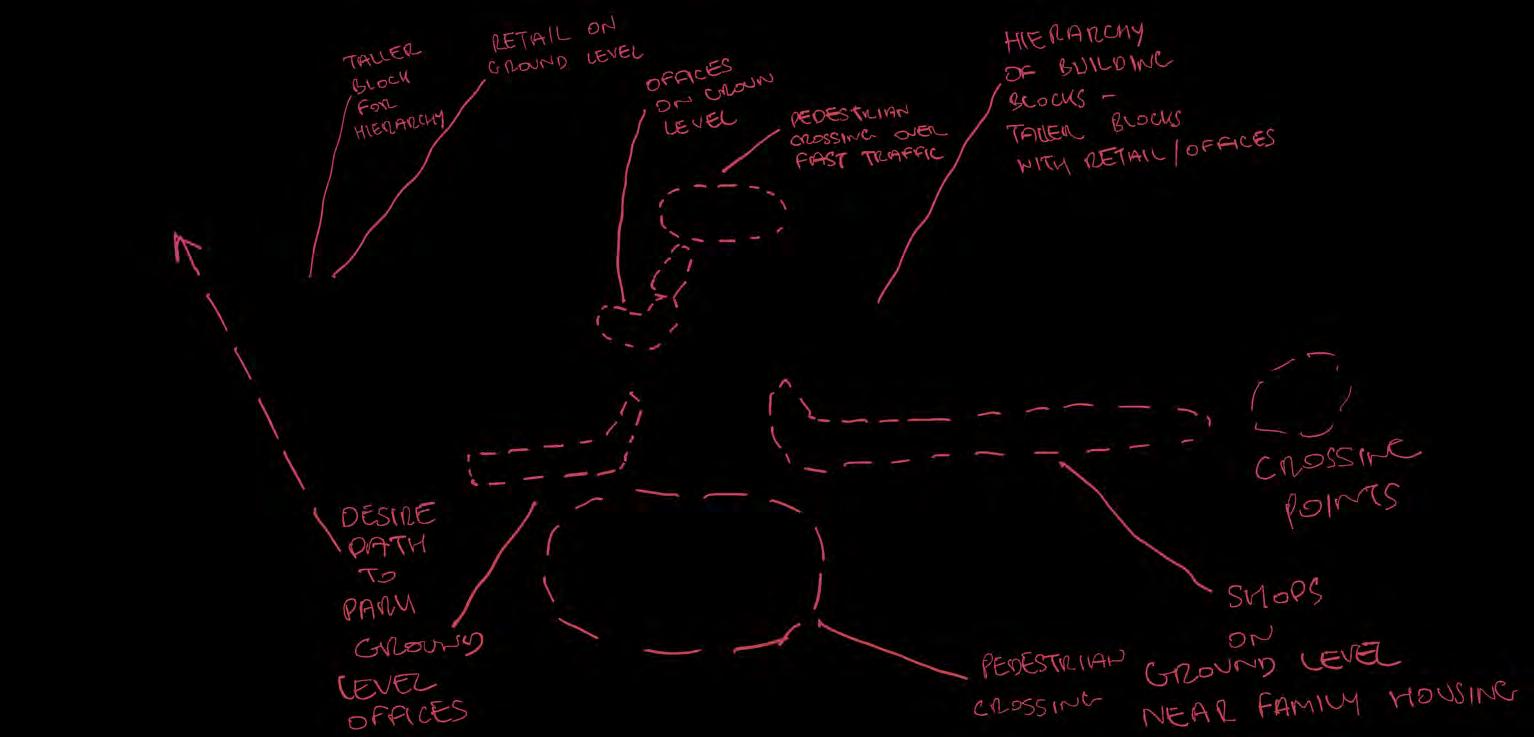 TALLER
BLOCK
FOR
HIERARCHY
RETAIL ON
GROUND LEVEL
OFFICES
ON GROUN
LEVEL
PEDESTRIAN
CROSSING OVER
FAST TRAFFIC
HIERARCHY
OF BUILDING
BLOCKS -
TALLER BLOCKS
WITH RETAIL/OFFICES
CROSSING
POINTS
DESIRE
PATH
TO
PARK
GROUND
LEVEL
OFFICES
PEDESTRIAN
CROSSING
SHOPS
ON
GROUND LEVEL
NEAR FAMILY HOUSING